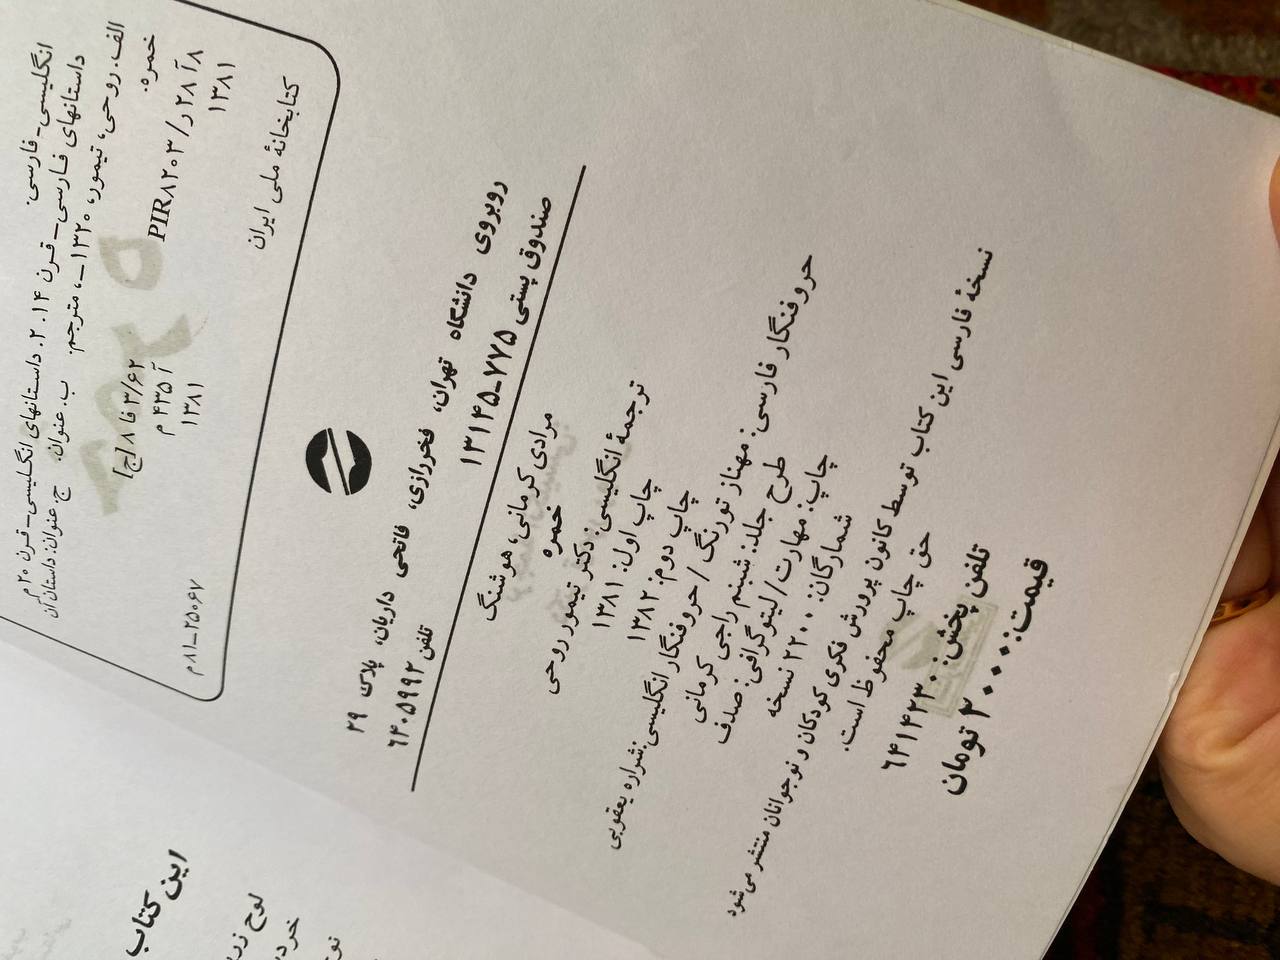 انگلیسی-فارسی.
داستانهای فارسی- قرن ۱۴. ۲. داستانهای انگلیسی- قرن ۲۰م
الف. روحی، تیمور، ۱۳۲۰-، مترجم. ب. عنوان. ج. عنوان: داستان آن
خمره.
۸آ۲۸د/PIR۸۲۰۳ ۳/۶۲فا۸[ج]
۱۳۸۱ آ۴۳۵م
۱۳۸۱
کتابخانهٔ ملی ایران
م۸۱-۲۵۰۶۷
روبروی دانشگاه تهران، فخررازی، فاتحی داریان، پلاک ۲۹
صندوق پستی ۷۷۵-۱۳۱۴۵ تلفن ۶۴۰۵۹۹۲
مرادی کرمانی، هوشنگ
خمره
ترجمهٔ انگلیسی: دکتر تیمور روحی
چاپ اول: ۱۳۸۱
چاپ دوم: ۱۳۸۲
حروفنگار فارسی: مهناز تورنگ / حروفنگار انگلیسی: شراره یعقوبی
طرح جلد: شبنم راجی کرمانی
چاپ: مهارت/ لیتوگرافی: صدف
شمارگان: ۲۲۰۰ نسخه
نسخهٔ فارسی این کتاب توسط کانون پرورش فکری کودکان و نوجوانان منتشر می‌شود
حق چاپ محفوظ است.
تلفن پخش: ۶۴۱۴۲۳۰
قیمت: ۲۰۰۰ تومان
این کتاب
لوح زر
خرد
نو